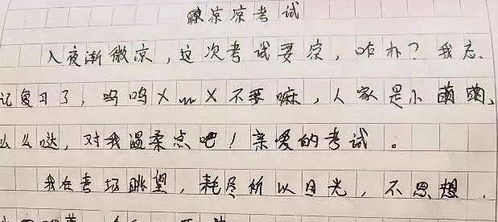 凉凉考试
入夜渐微凉,这次考试要凉,咋办?我忘
记复习了,呜呜X﹏X不要嘛,人家是小萌萌,
么么哒,对我温柔点吧!亲爱的考试。
我在考场眺望,耗尽所以目光,不思想